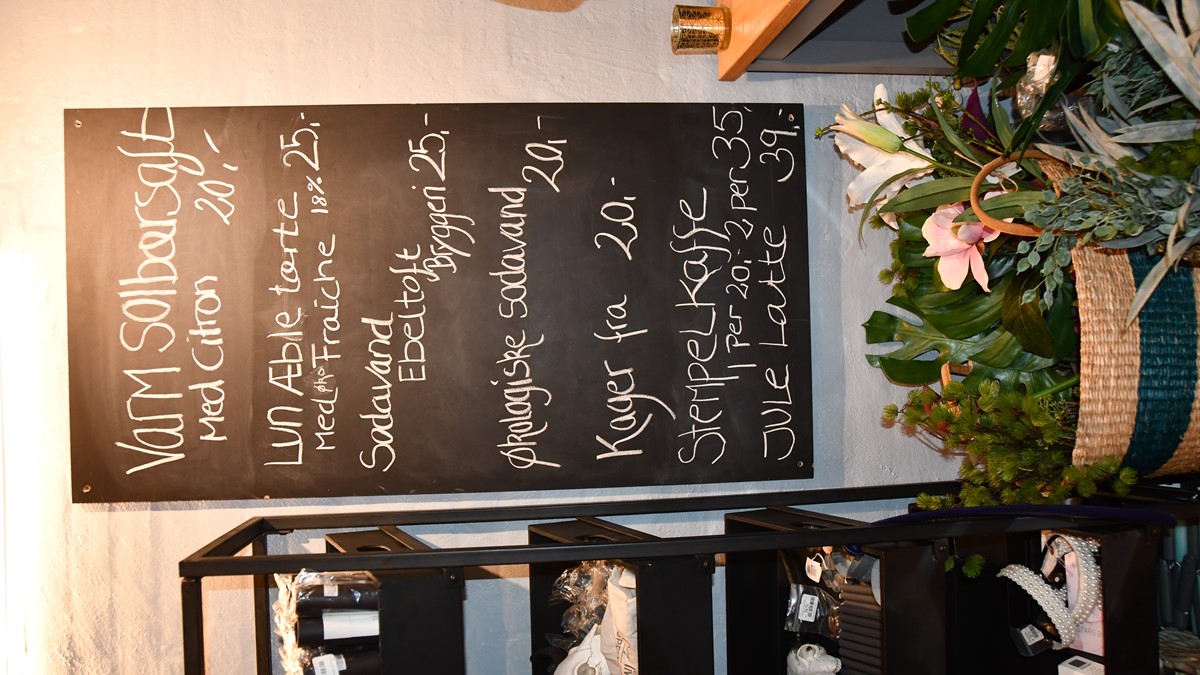 Varm Solbærsaft
Med Citron 20,-
Lun Æble tærte
Med øko Fraiche 18% 25,-
Sodavand
Ebeltoft
Bryggeri 25,-
Økologiske sodavand
20,-
Kager fra 20,-
Stempel Kaffe
1 Per 20,- 2 per 35,
JULE Latte 39,-